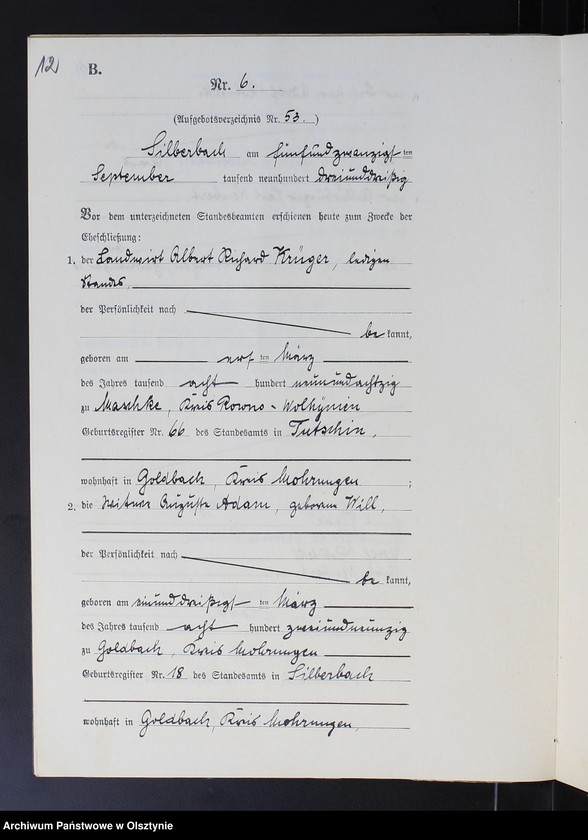 12
B.
Nr. 6.
(Aufgebotsverzeichnis Nr. 53.)
Silberbach am fünfundzwanzigsten
September tausend neunhundert dreiunddreißig
Vor dem unterzeichneten Standesbeamten erschienen heute zum Zwecke der
Eheschließung:
1. der Landwirt Albert Richard Krüger, ledigen
Standes,
der Persönlichkeit nach
be kannt,
geboren am ten März
des Jahres tausend acht hundert neunundachtzig
zu Maschke, Kreis Rowno - Wolhynien
Geburtsregister Nr. 66 des Standesamts in Tutschin,
wohnhaft in Goldbach, Kreis Mohrungen ;
2. die Witwe Auguste Adam, geborene Will,
der Persönlichkeit nach
be kannt,
geboren am einunddreißigsten März
des Jahres tausend acht hundert zweiundneunzig
zu Goldbach, Kreis Mohrungen
Geburtsregister Nr. 18 des Standesamts in Silberbach
wohnhaft in Goldbach, Kreis Mohrungen,
Archiwum Państwowe w Olsztynie